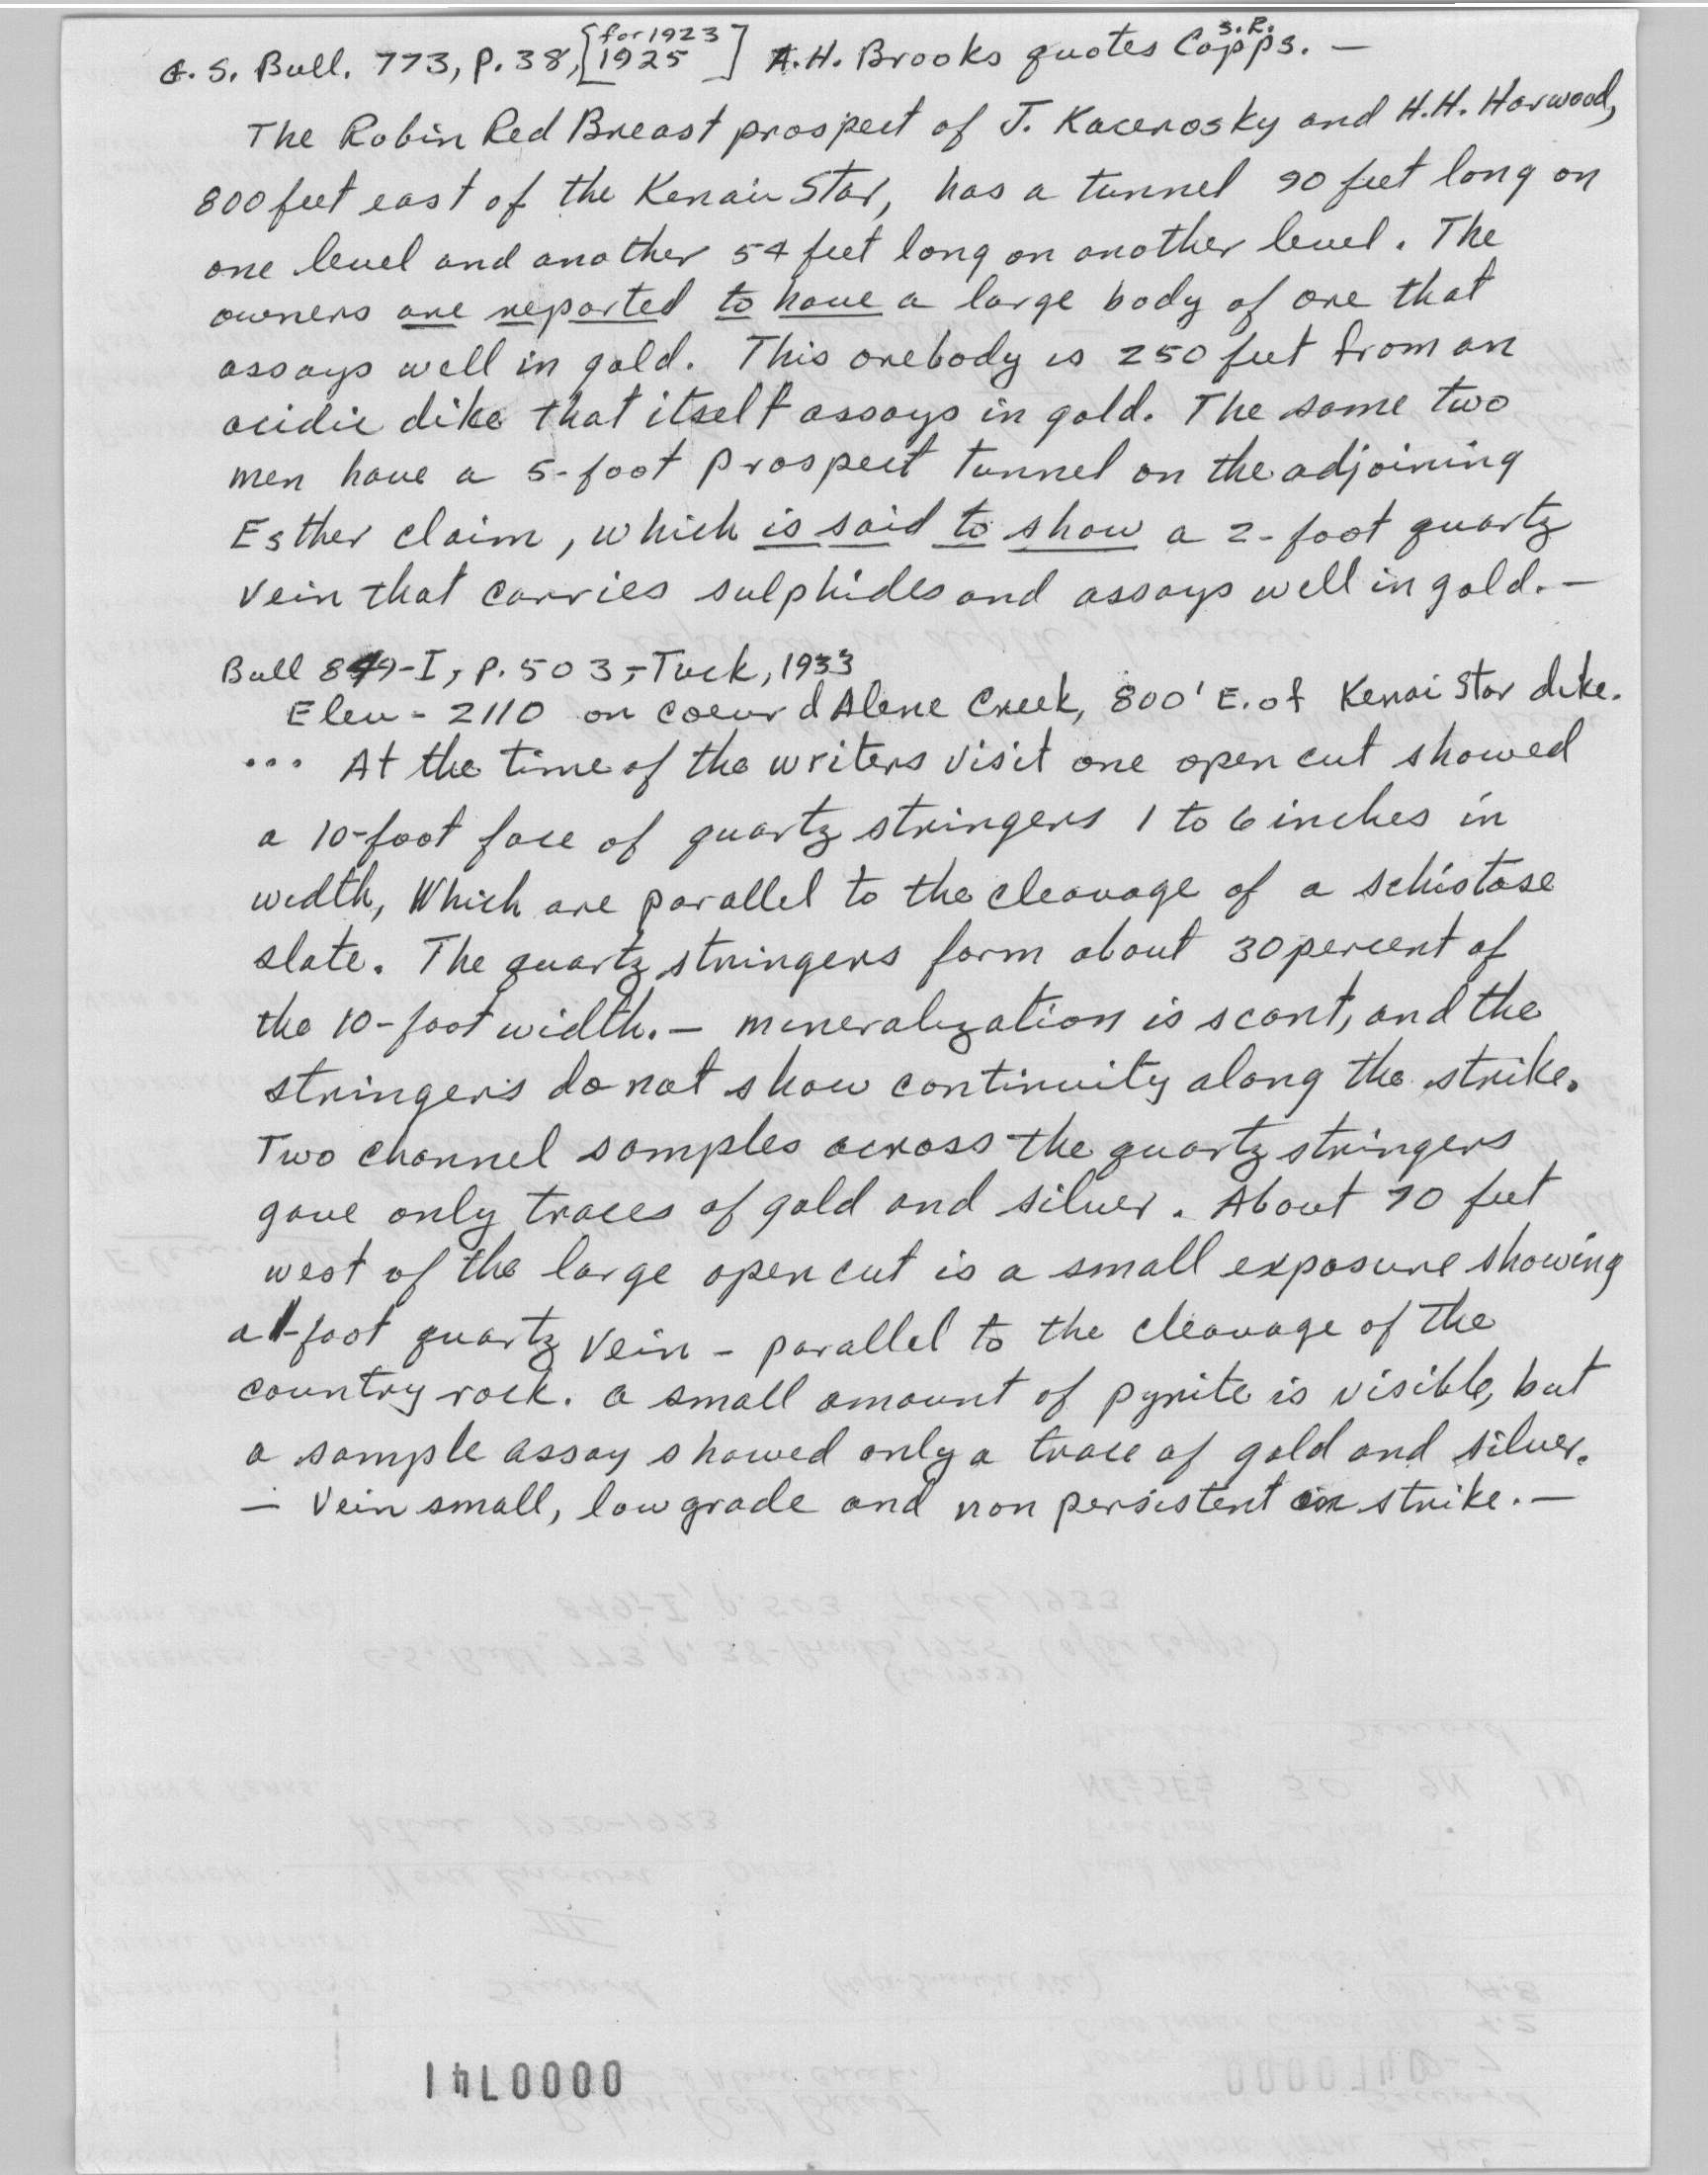 G. S. Bull. 773, P. 38, [for 1923 1925] A.H. Brooks quotes S.R. Capps. —
The Robin Red Breast prospect of J. Kacerosky and H.H. Harwood,
800 feet east of the Kenai Star, has a tunnel 90 feet long on
one level and another 54 feet long on another level. The
owners are reported to have a large body of ore that
assays well in gold. This orebody is 250 feet from an
acidic dike that itself assays in gold. The same two
men have a 5-foot prospect tunnel on the adjoining
Esther claim, which is said to show a 2-foot quartz
vein that carries sulphides and assays well in gold. —
Bull 849-I, P. 503, - Tuck, 1933
Elev - 2110 on Coeur d Alene Creek, 800' E. of Kenai Star dike.
... At the time of the writers visit one open cut showed
a 10-foot face of quartz stringers 1 to 6 inches in
width, Which are parallel to the cleavage of a schistose
slate. The quartz stringers form about 30 percent of
the 10-foot width. — mineralization is scant, and the
stringers do not show continuity along the strike.
Two channel samples across the quartz stringers
gave only traces of gold and silver. About 70 feet
west of the large open cut is a small exposure showing
a 1-foot quartz vein - parallel to the cleavage of the
country rock. a small amount of pyrite is visible, but
a sample assay showed only a trace of gold and silver.
— Vein small, low grade and non persistent in strike. —